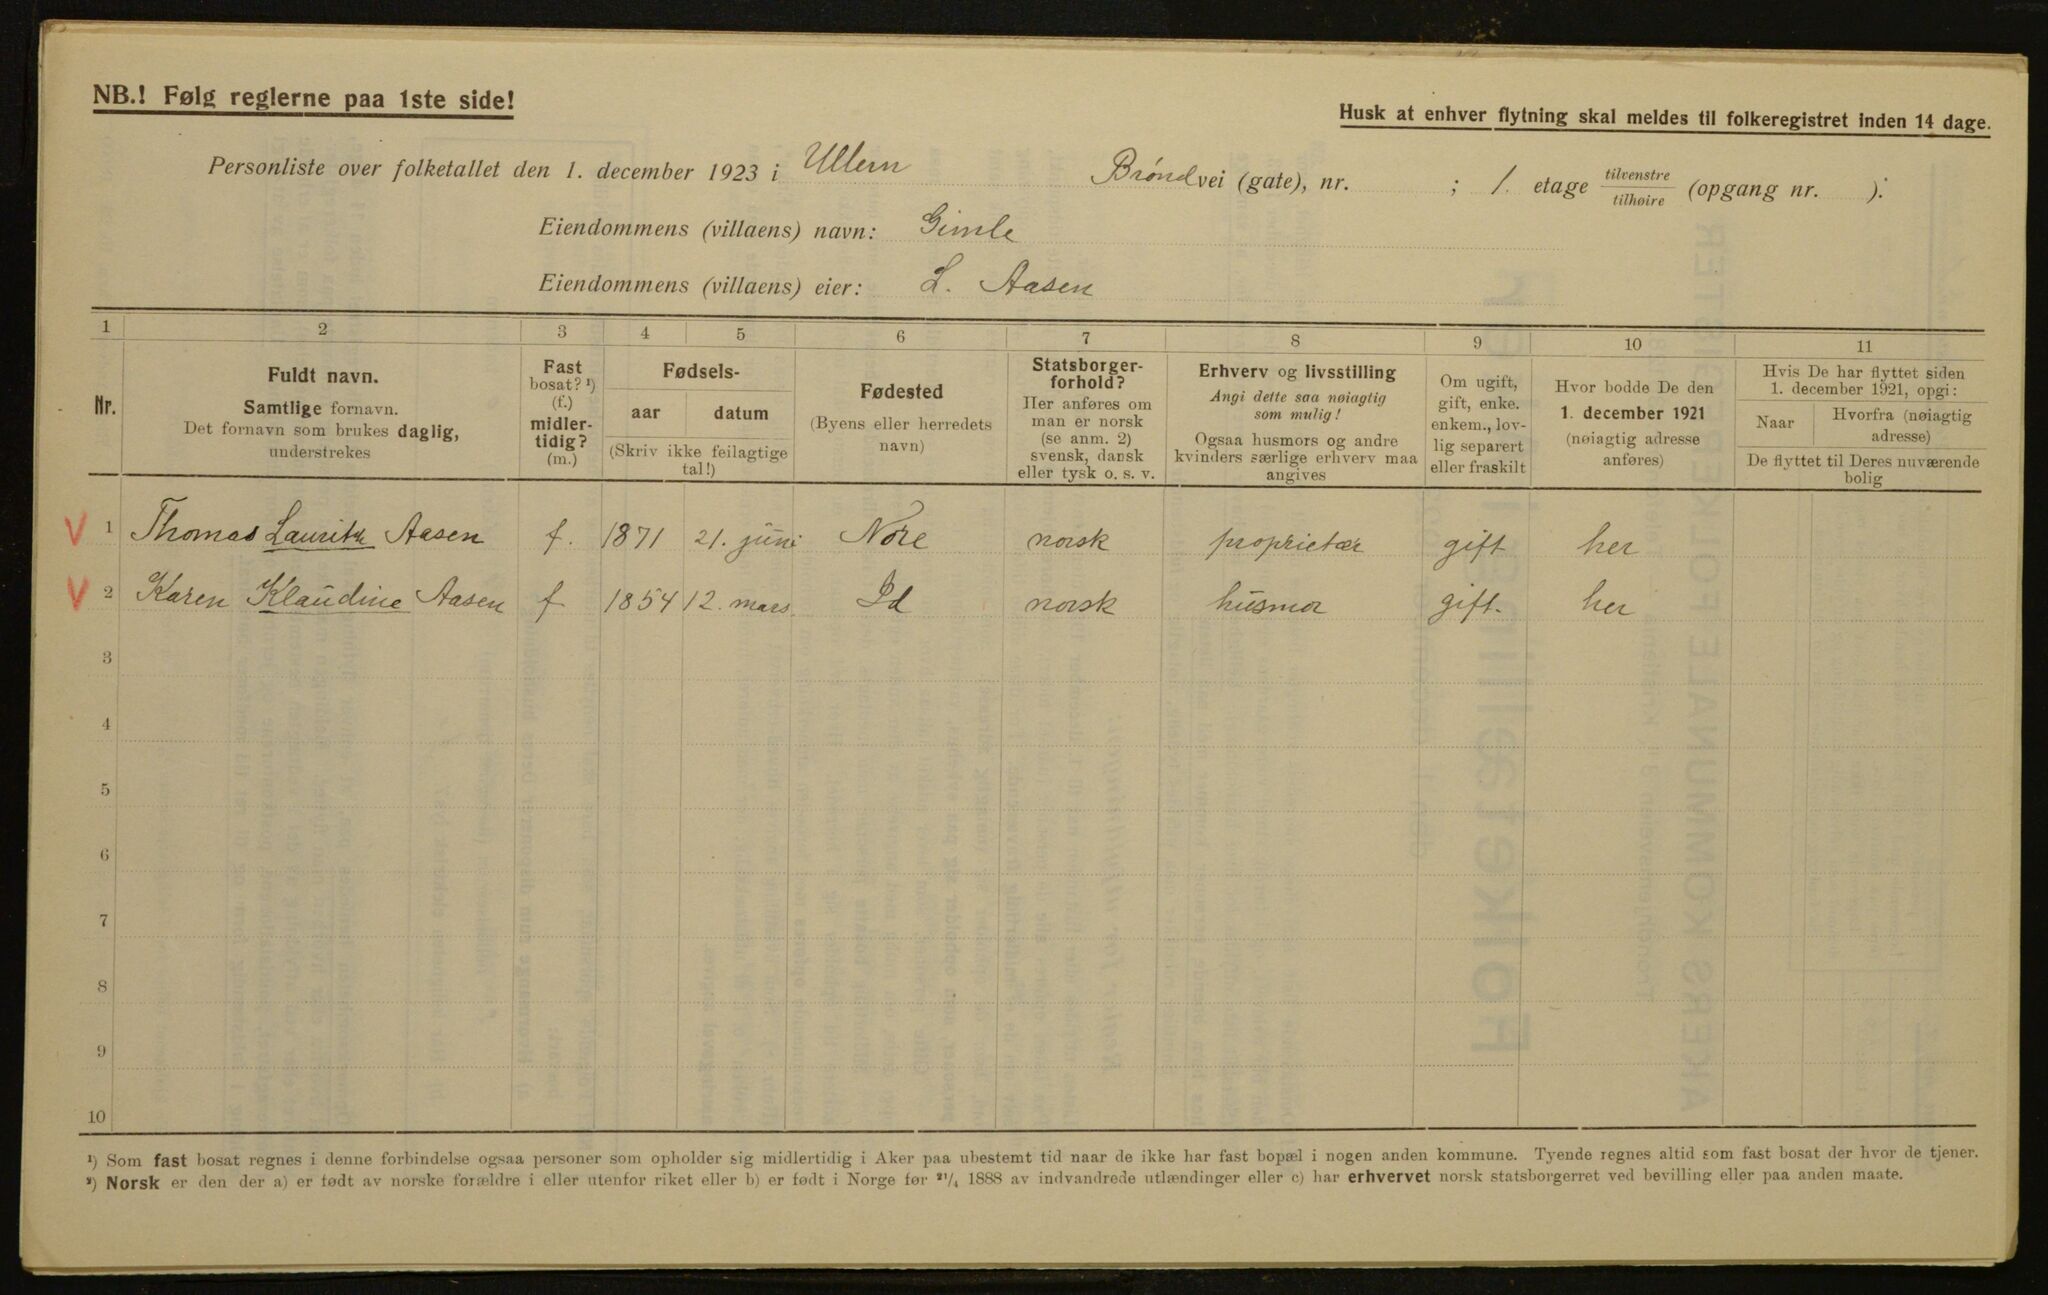 NB.! Følg reglerne paa 1ste side!
Husk at enhver flytning skal meldes til folkeregistret inden 14 dage.
Personliste over folketallet den 1. december 1923 i Ullern Brøndvei (gate), nr. ; 1. etage tilvenstre/tilhøire (opgang nr. ):
Eiendommens (villaens) navn: Gimle
Eiendommens (villaens) eier: L. Aasen
1 2 3 4 5 6 7 8 9 10 11
Nr.
Fuldt navn.
Samtlige fornavn.
Det fornavn som brukes daglig,
understrekes
Fast
bosat? ¹)
(f.)
midler-
tidig?
(m.)
Fødsels-
aar datum
(Skriv ikke feilagtige
tal!)
Fødested
(Byens eller herredets
navn)
Statsborger-
forhold?
Her anføres om
man er norsk
(se anm. 2)
svensk, dansk
eller tysk o. s. v.
Erhverv og livsstilling
Angi dette saa nøiagtig
som mulig!
Ogsaa husmors og andre
kvinders særlige erhverv maa
angives
Om ugift,
gift, enke.
enkem., lov-
lig separert
eller fraskilt
Hvor bodde De den
1. december 1921
(nøiagtig adresse
anføres)
Hvis De har flyttet siden
1. december 1921, opgi:
Naar Hvorfra (nøiagtig
adresse)
De flyttet til Deres nuværende
bolig
V 1 Thomas Lauritz Aasen f. 1871 21. juni Nore norsk proprietær gift her
V 2 Karen Klaudine Aasen f 1854 12. mars. Id norsk husmor gift. her
3
4
5
6
7
8
9
10
¹) Som fast bosat regnes i denne forbindelse ogsaa personer som opholder sig midlertidig i Aker paa ubestemt tid naar de ikke har fast bopæl i nogen anden kommune. Tyende regnes altid som fast bosat der hvor de tjener.
²) Norsk er den der a) er født av norske forældre i eller utenfor riket eller b) er født i Norge før ²¹/₄ 1888 av indvandrede utlændinger eller c) har erhvervet norsk statsborgerret ved bevilling eller paa anden maate.